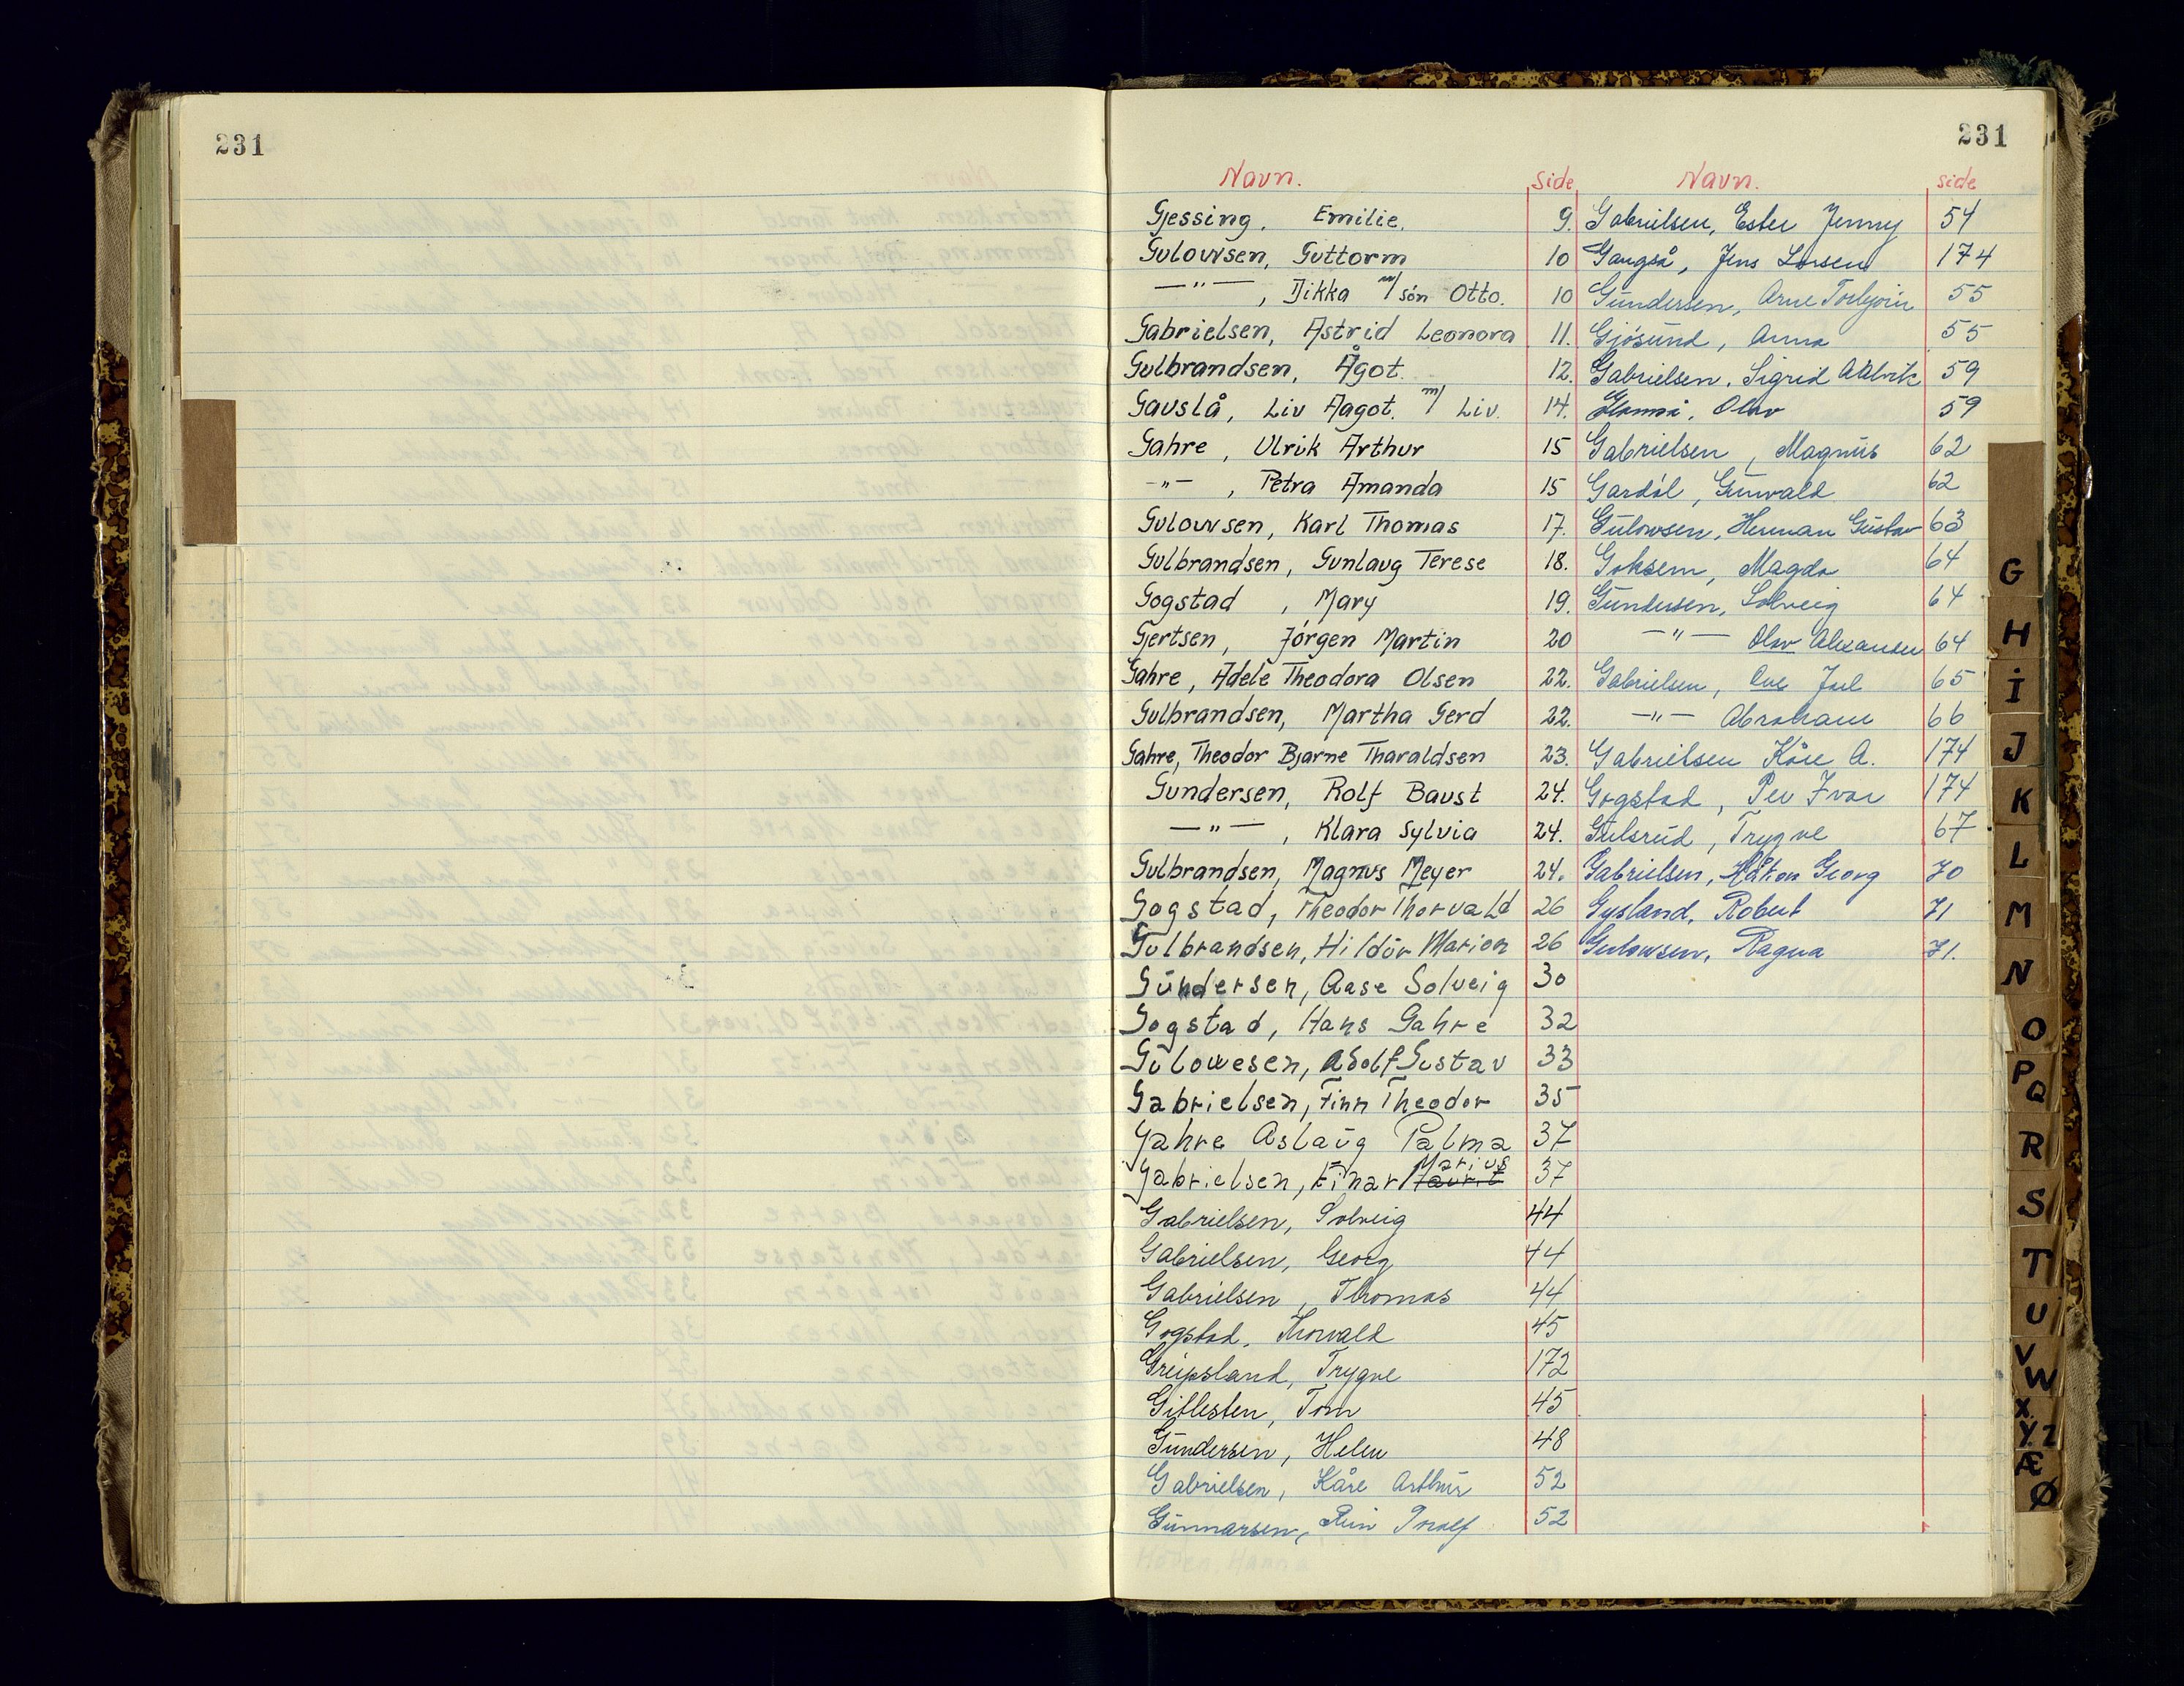 231
231
Navn. Side Navn. side
Gjessing, Emilie. 9.
Gulowsen, Guttorm 10
—"—, Dikka m/ søn Otto. 10
Gabrielsen, Astrid Leonora 11.
Gulbrandsen, Ågot. 12.
Gauslå, Liv Aagot. m/ Liv. 14.
Gahre, Ulrik Arthur 15
-"-, Petra Amanda 15
Gulowsen, Karl Thomas 17.
Gulbrandsen, Gunlaug Terese 18.
Gogstad, Mary 19.
Gjertsen, Jørgen Martin 20
Gahre, Adele Theodora Olsen 22.
Gulbrandsen, Martha Gerd 22.
Gahre, Theodor Bjarne Tharaldsen 23.
Gundersen, Rolf Baust 24.
—"—, Klara Sylvia 24.
Gulbrandsen, Magnus Meyer 24.
Gogstad, Theodor Thorvald 26
Gulbrandsen, Hildür Marion 26
Gündersen, Aase Solveig 30
Gogstad, Hans Gahre 32
Gulowesen, Adolf Gustav 33
Gabrielsen, Finn Theodor 35
Gahre Aslaüg Palma 37
Gabrielsen, Einar Marius 37
Gabrielsen, Solveig 44
Gabrielsen, Georg 44
Gabrielsen, Thomas 44
Gogstad, Thorvald 45
Greipsland, Trygve 172
Gitlesten, Tom 45
Gündersen, Helen 48
Gabrielsen, Kåre Arthür 52
Günnarsen, 52
Gabrielsen, Ester Jenny 54
Gaugså, Jens Larsen 174
Gündersen, Arne Torbjørn 55
Gjøsünd, Anna 55
Gabrielsen, Sigrid 59
Olav 59
Gabrielsen, Magnüs 62
Gardøl, Grünvald 62
Gülowsen, Herman Güstav 63
Goksem, Magda 64
Gündersen, Solveig 64
—"— Olav Alexander 64
Gabrielsen, Ove Joel 65
—"— Abraham 66
Gabrielsen Kåre A. 174
Gogstad, Per Ivar 174
Gülsrüd, Trygve 67
Gabrielsen, Håkon Georg 70
Gysland, Robert 71
Gulowsen, Ragna 71.
G
H
I
J
K
L
M
N
O
P
Q
R
S
T
U
V
W
X
Y Z
Æ
Ø